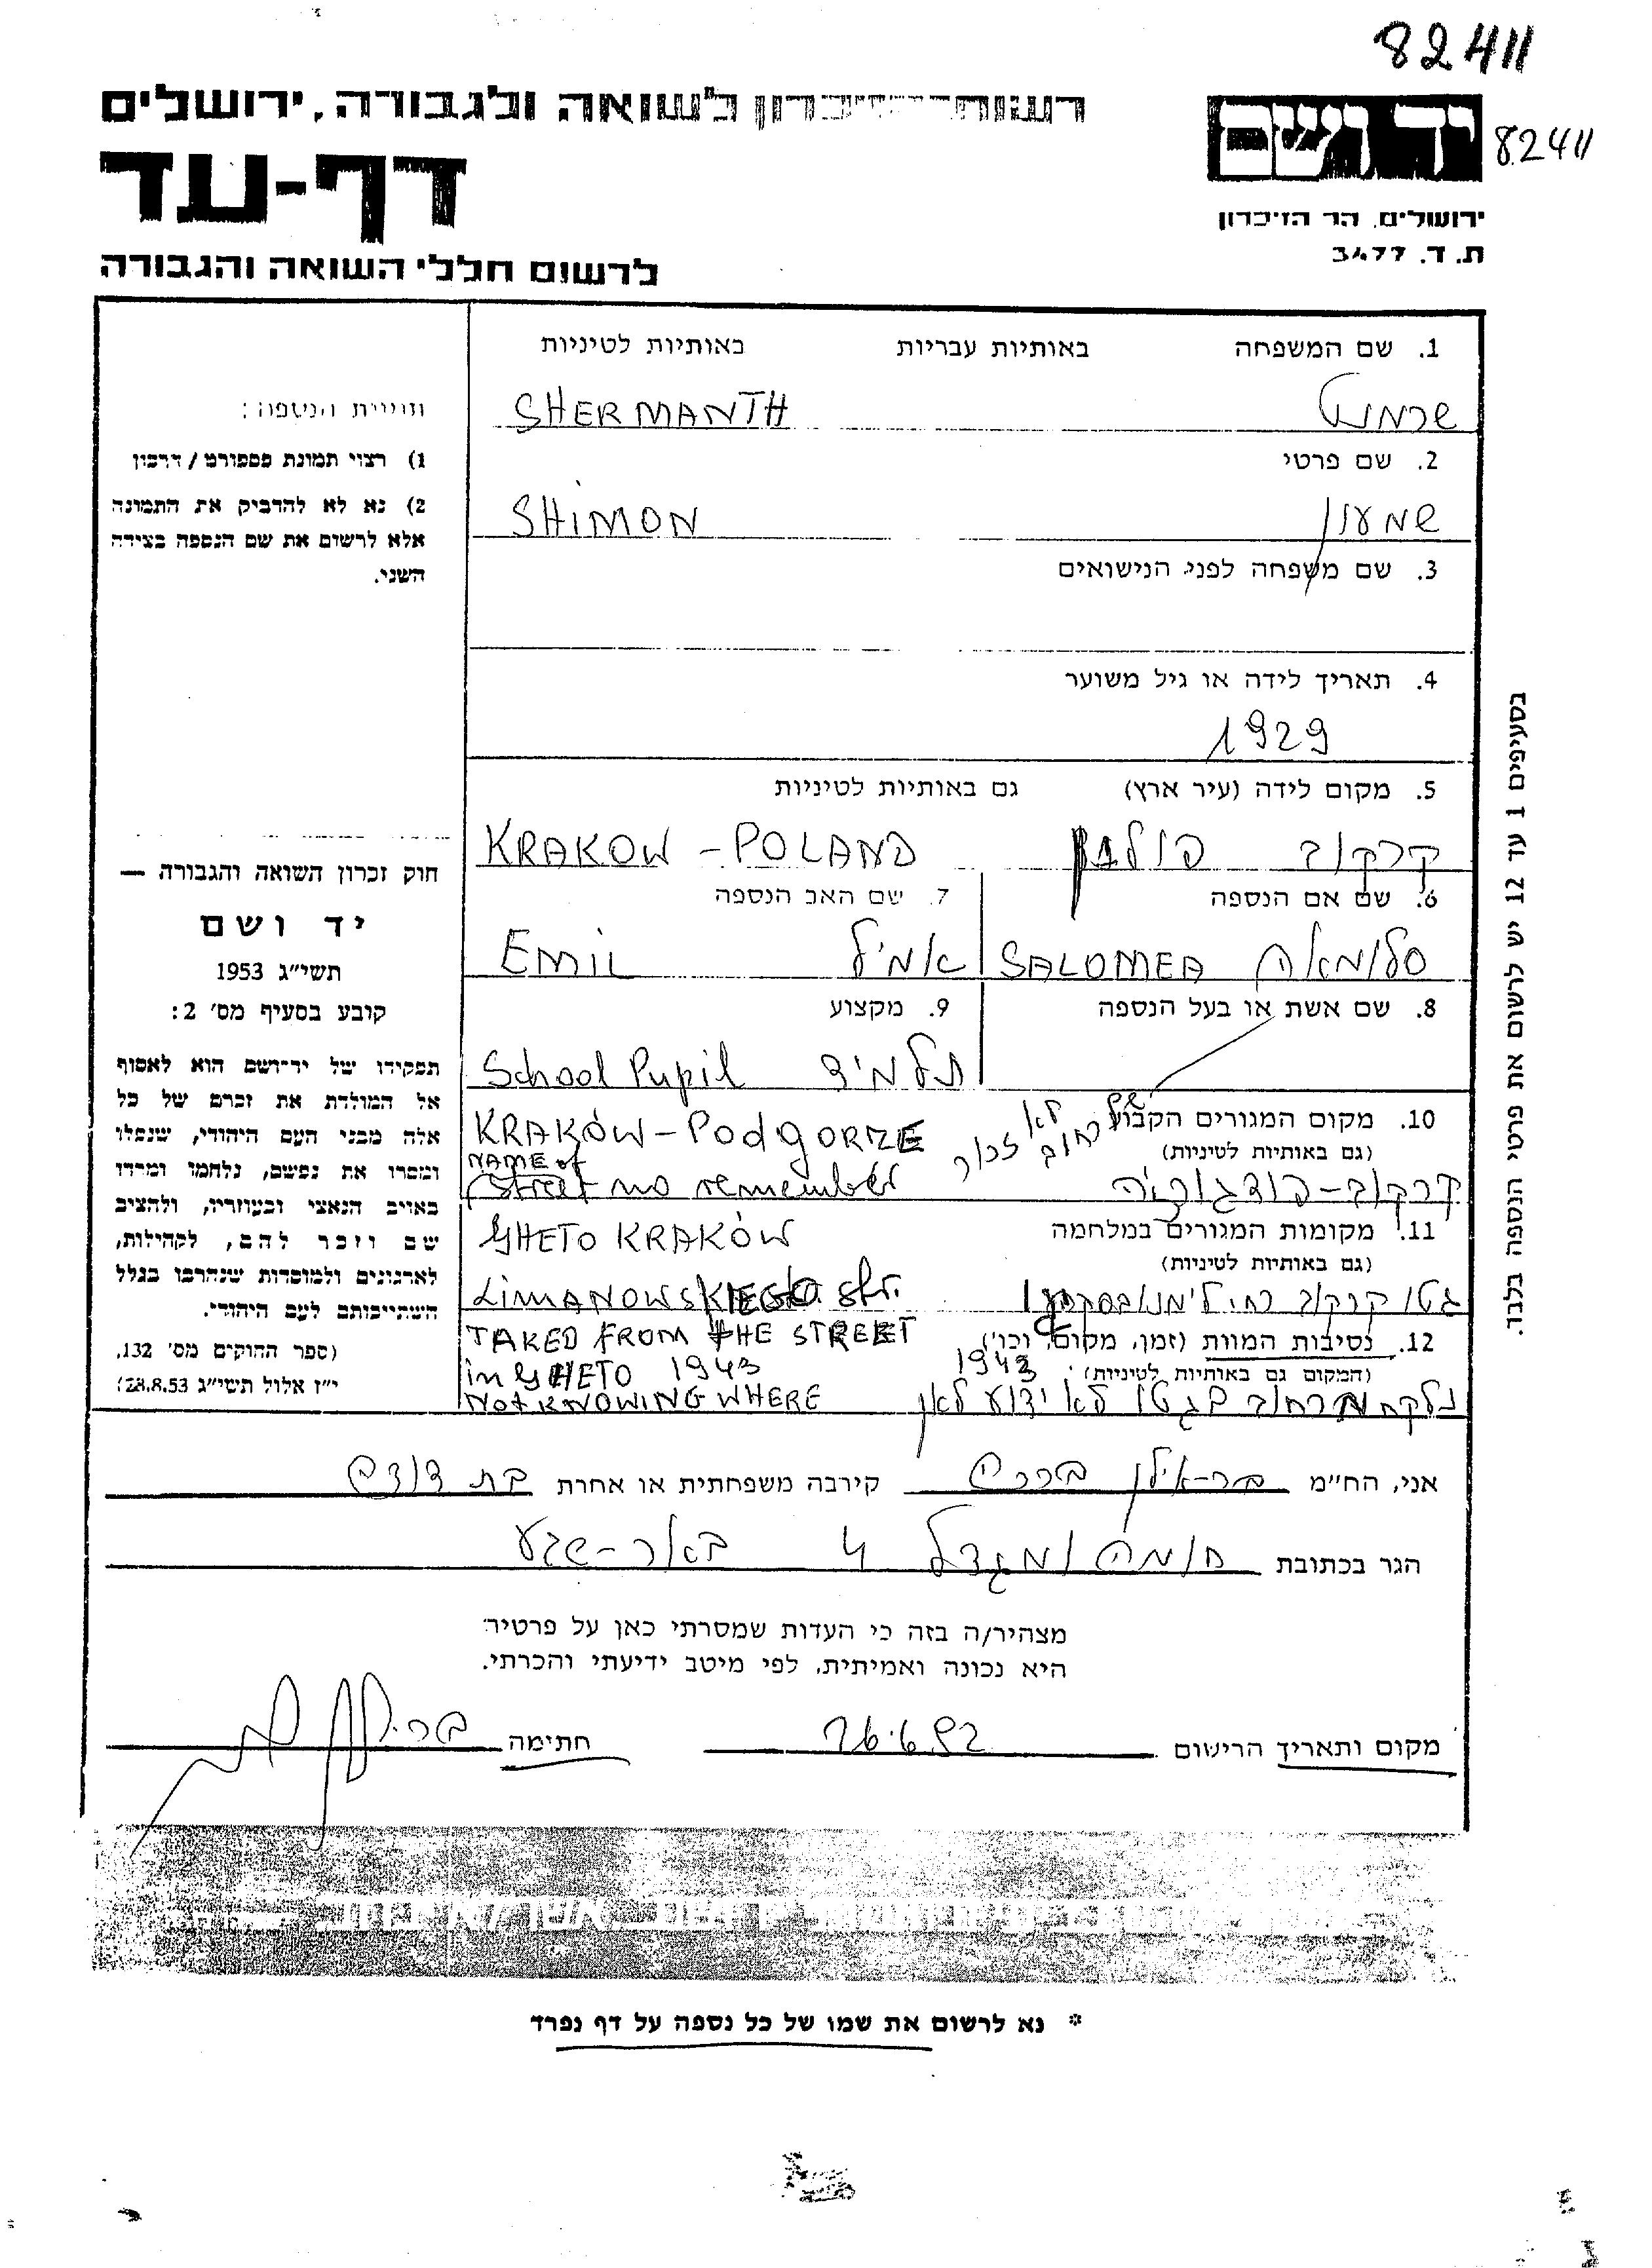 82411
82411
לשואה ולגבורה, ירושלים
דף-עד
לרשום חללי השואה והגבורה
יד ושם
ירושלים, הר הזיכרון
ת. ד. 3477
1. שם המשפחה באותיות עבריות באותיות לטיניות
SHERMANTH
2. שם פרטי
שמעון SHIMON
3. שם משפחה לפני הנישואים
4. תאריך לידה או גיל משוער
1929
5. מקום לידה (עיר ארץ) גם באותיות לטיניות
קרקוב פולין KRAKOW - POLAND
6. שם אם הנספה 7. שם האב הנספה
סלומאה SALOMEA אמיל EMIL
8. שם אשת או בעל הנספה 9. מקצוע
תלמיד School Pupil
10. מקום המגורים הקבוע
(גם באותיות לטיניות)
KRAKÓW - PODGORZE
NAME of
street no remember
קרקוב-פודגוריה
שם רחוב לא זכור
11. מקומות המגורים במלחמה
(גם באותיות לטיניות)
GHETO KRAKÓW
LIMANOWSKIEGO str.
גטו קרקוב רח' לימנובסקיגו
12. נסיבות המוות (זמן, מקום, וכו')
(המקום גם באותיות לטיניות)
TAKED FROM THE STREET
in GHETO 1943
NOT KNOWING WHERE
1943
נלקח מרחוב בגטו לא ידוע לאן
הנספה:
1) רצוי תמונת פספורט / דרכון
2) נא לא להדביק את התמונה
אלא לרשום את שם הנספה בצידה
השני.
חוק זכרון השואה והגבורה —
יד ושם
תשי״ג 1953
קובע בסעיף מס׳ 2:
תפקידו של יד-ושם הוא לאסוף
אל המולדת את זכרם של כל
אלה מבני העם היהודי, שנפלו
ומסרו את נפשם, נלחמו ומרדו
באויב הנאצי ובעוזריו, ולהציב
שם וזכר להם, לקהילות,
לארגונים ולמוסדות שנחרבו בגלל
השתייכותם לעם היהודי.
(ספר החוקים מס׳ 132,
י״ז אלול תשי״ג 28.8.53)
בסעיפים 1 עד 12 יש לרשום את פרטי הנספה בלבד.
אני, הח״מ בר-אילן ברכה קירבה משפחתית או אחרת בת דודה
הגר בכתובת חומה ומגדל 4 באר-שבע
מצהיר/ה בזה כי העדות שמסרתי כאן על פרטיה
היא נכונה ואמיתית, לפי מיטב ידיעתי והכרתי.
מקום ותאריך הרישום 26.6.92 חתימה
* נא לרשום את שמו של כל נספה על דף נפרד